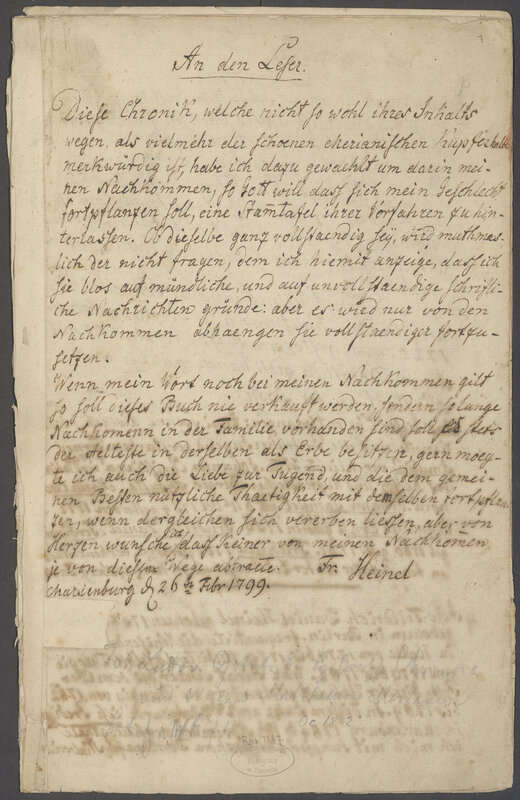 An den Leser.
Diese Chronik, welche nicht so wohl ihres Inhalts
wegen, als vielmehr der schoenen merianischen
merkwürdig ist, habe ich dazu gewaehlt um darin mei-
nen Nachkommen, so Gott will dass sich mein Geschlecht
fortpflanzen soll, eine Stam̅tafel ihrer Vorfahren zu hin-
terlassen. Ob dieselbe ganz vollstaendig sey, wird muthmas-
lich der nicht fragen, dem ich hiemit anzeige, dass ich
sie blos auf mündliche, und auf unvollstaendige schriftli-
che Nachrichten gründe: aber es wird nur von den
Nachkommen abhaengen sie vollstaendiger fortzu-
setzen.
Wenn mein Wort noch bei meinen Nachkommen gilt
so soll dieses Buch nie verkauft werden, sondern solange
Nachkomenn in der Familie vorhanden sind soll es stets
der Aelteste in derselben als Erbe besitzen, gern moeg-
te ich auch die Liebe zur Tugend, und die dem gemei-
nen Besten nützliche Thaetigkeit mit demselben fortpflan
zen, wenn dergleichen sich vererben liessen, aber von
Herzen wünsche ich dass keiner von meinen Nachkomen
je von diesem Wege abtraete. Fr. Heinel
Marienburg d 26 Febr 1799.